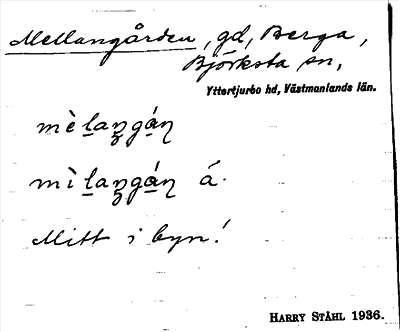 Mellangården, gd, Berga,
Björksta sn,
Yttertjurbo hd, Västmanlands län.
mèlaŋgáɳ
mìlaŋgáɳ á.
Mitt i byn!
HARRY STÅHL 1936.